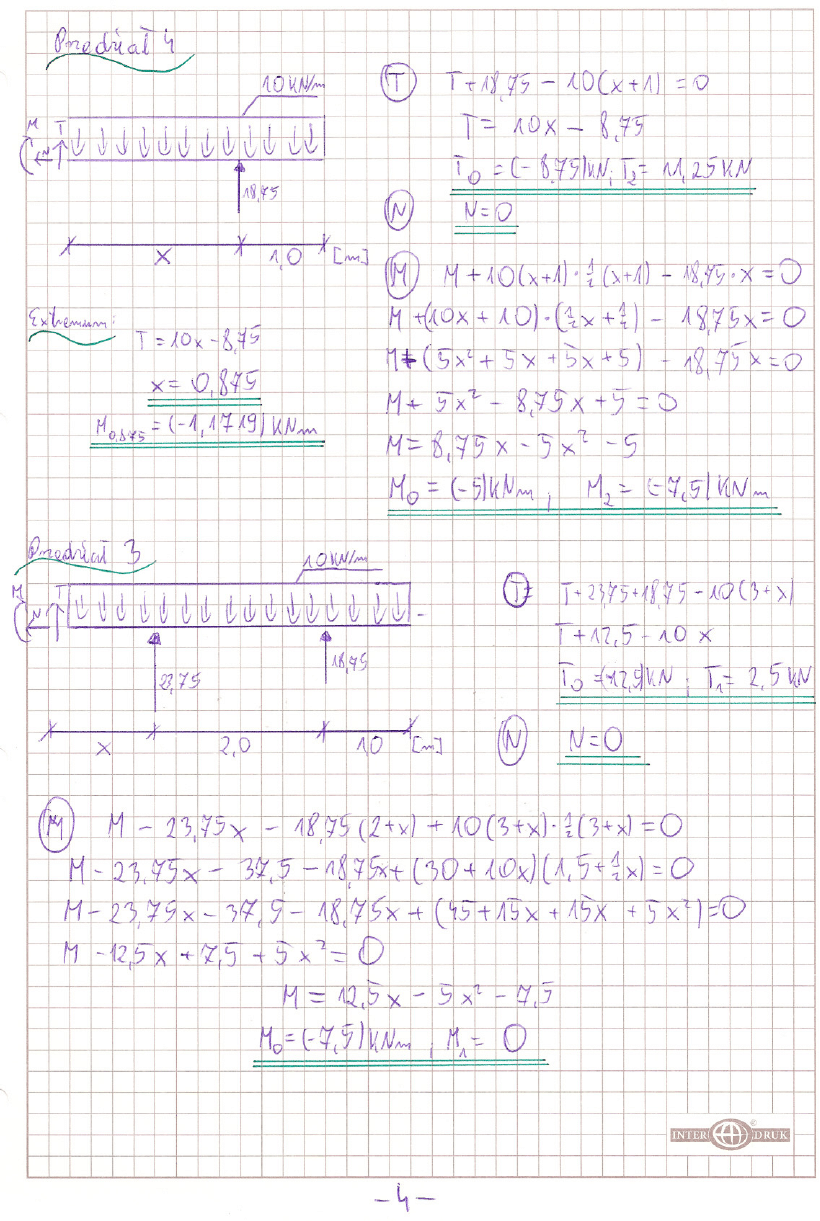 Przedział 4
10KN/m
M
T
N
18,75
x
1,0
[m]
T
T+18,75 - 10(x+1) = 0
T = 10x - 8,75
T0 = (-8,75)KN; T2 = 11,25KN
N
N=0
M
M+10(x+1)·1/2(x+1) - 18,75·x = 0
M+(10x+10)·(1/2x+1/2) - 18,75x = 0
M+(5x²+5x+5x+5) - 18,75x = 0
M+5x² - 8,75x+5 = 0
M = 8,75x - 5x² - 5
M0 = (-5)KNm; M2 = (-7,5)KNm
Extremum:
T=10x-8,75
x = 0,875
M0,875 = (-1,1719)KNm
Przedział 3
10KN/m
M
T
N
23,75
18,75
x
2,0
1,0
[m]
T=
T+23,75+18,75-10(3+x)
T+12,5-10x
T0 = (-12,5)KN; T1 = 2,5KN
N
N=0
M
M - 23,75x - 18,75(2+x) + 10(3+x)·1/2(3+x) = 0
M-23,75x - 37,5 - 18,75x + (30+10x)(1,5+1/2x) = 0
M-23,75x-37,5 - 18,75x + (45+15x+15x+5x²) = 0
M -12,5x + 7,5 + 5x² = 0
M = 12,5x - 5x² - 7,5
M0 = (-7,5)KNm; M1 = 0
INTER DRUK
©
-4-